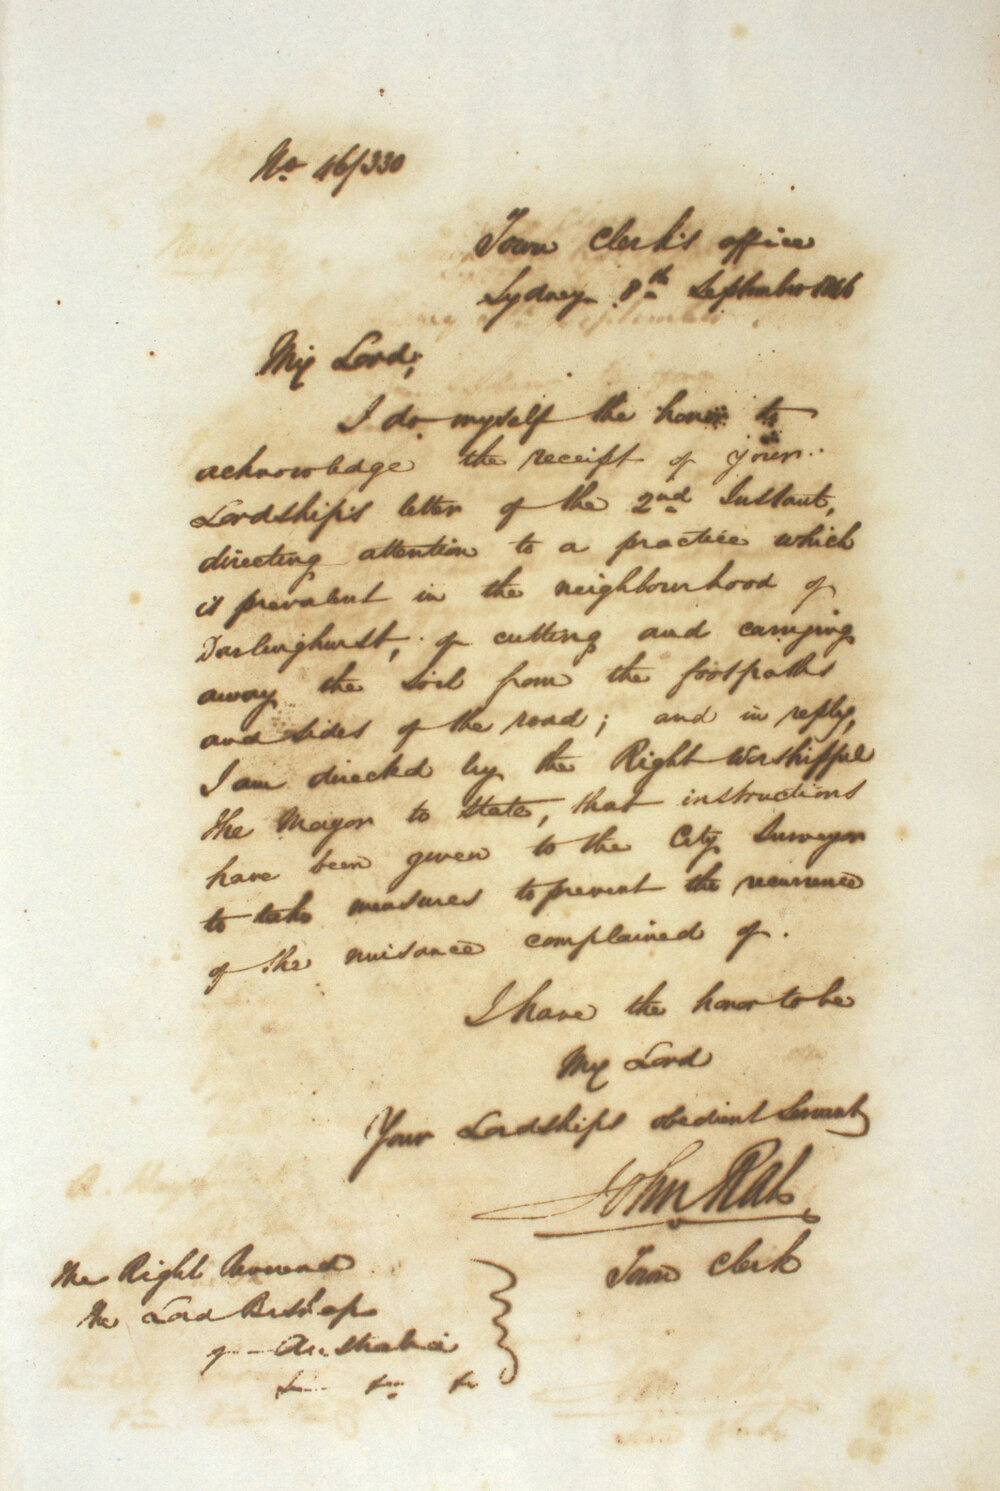 No. 46/330
Town Clerk's office
Sydney 8th September 1846
My Lord,
I do myself the honor to
acknowledge the receipt of your
Lordship's letter of the 2nd Instant,
directing attention to a practice which
is prevalent in the neighbourhood of
Darlinghurst, of cutting and carrying
away the soil from the footpaths
and sides of the road; and in reply,
I am directed by the Right Worshipful
the Mayor to state, that instructions
have been given to the City Surveyor
to take measures to prevent the recurrence
of the nuisance complained of.
I have the honor to be
My Lord
Your Lordships obedient Servant
John Rae
Town Clerk
The Right Reverend
the Lord Bishop
of Australia
&c &c &c